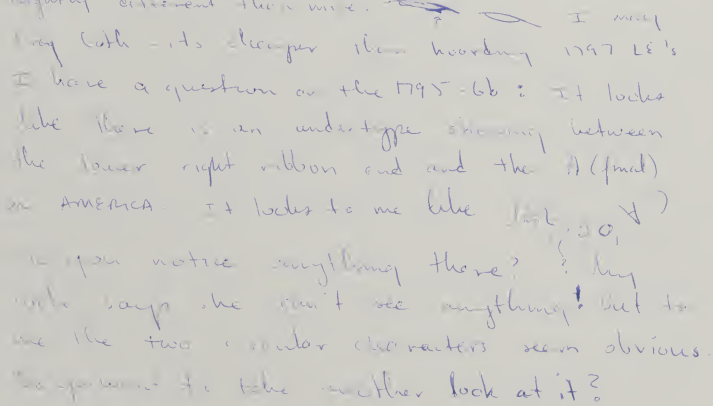 different than mine. I may
buy both - its cheaper than hoarding 1797 LE's
I have a question on the 1795-6b: It looks
like there is an undertype showing between
the lower right ribbon end and the A (final)
in AMERICA. It looks to me like
you notice anything there? My
wife says she can't see anything! but to
me the two similar characters seem obvious.
to take another look at it?